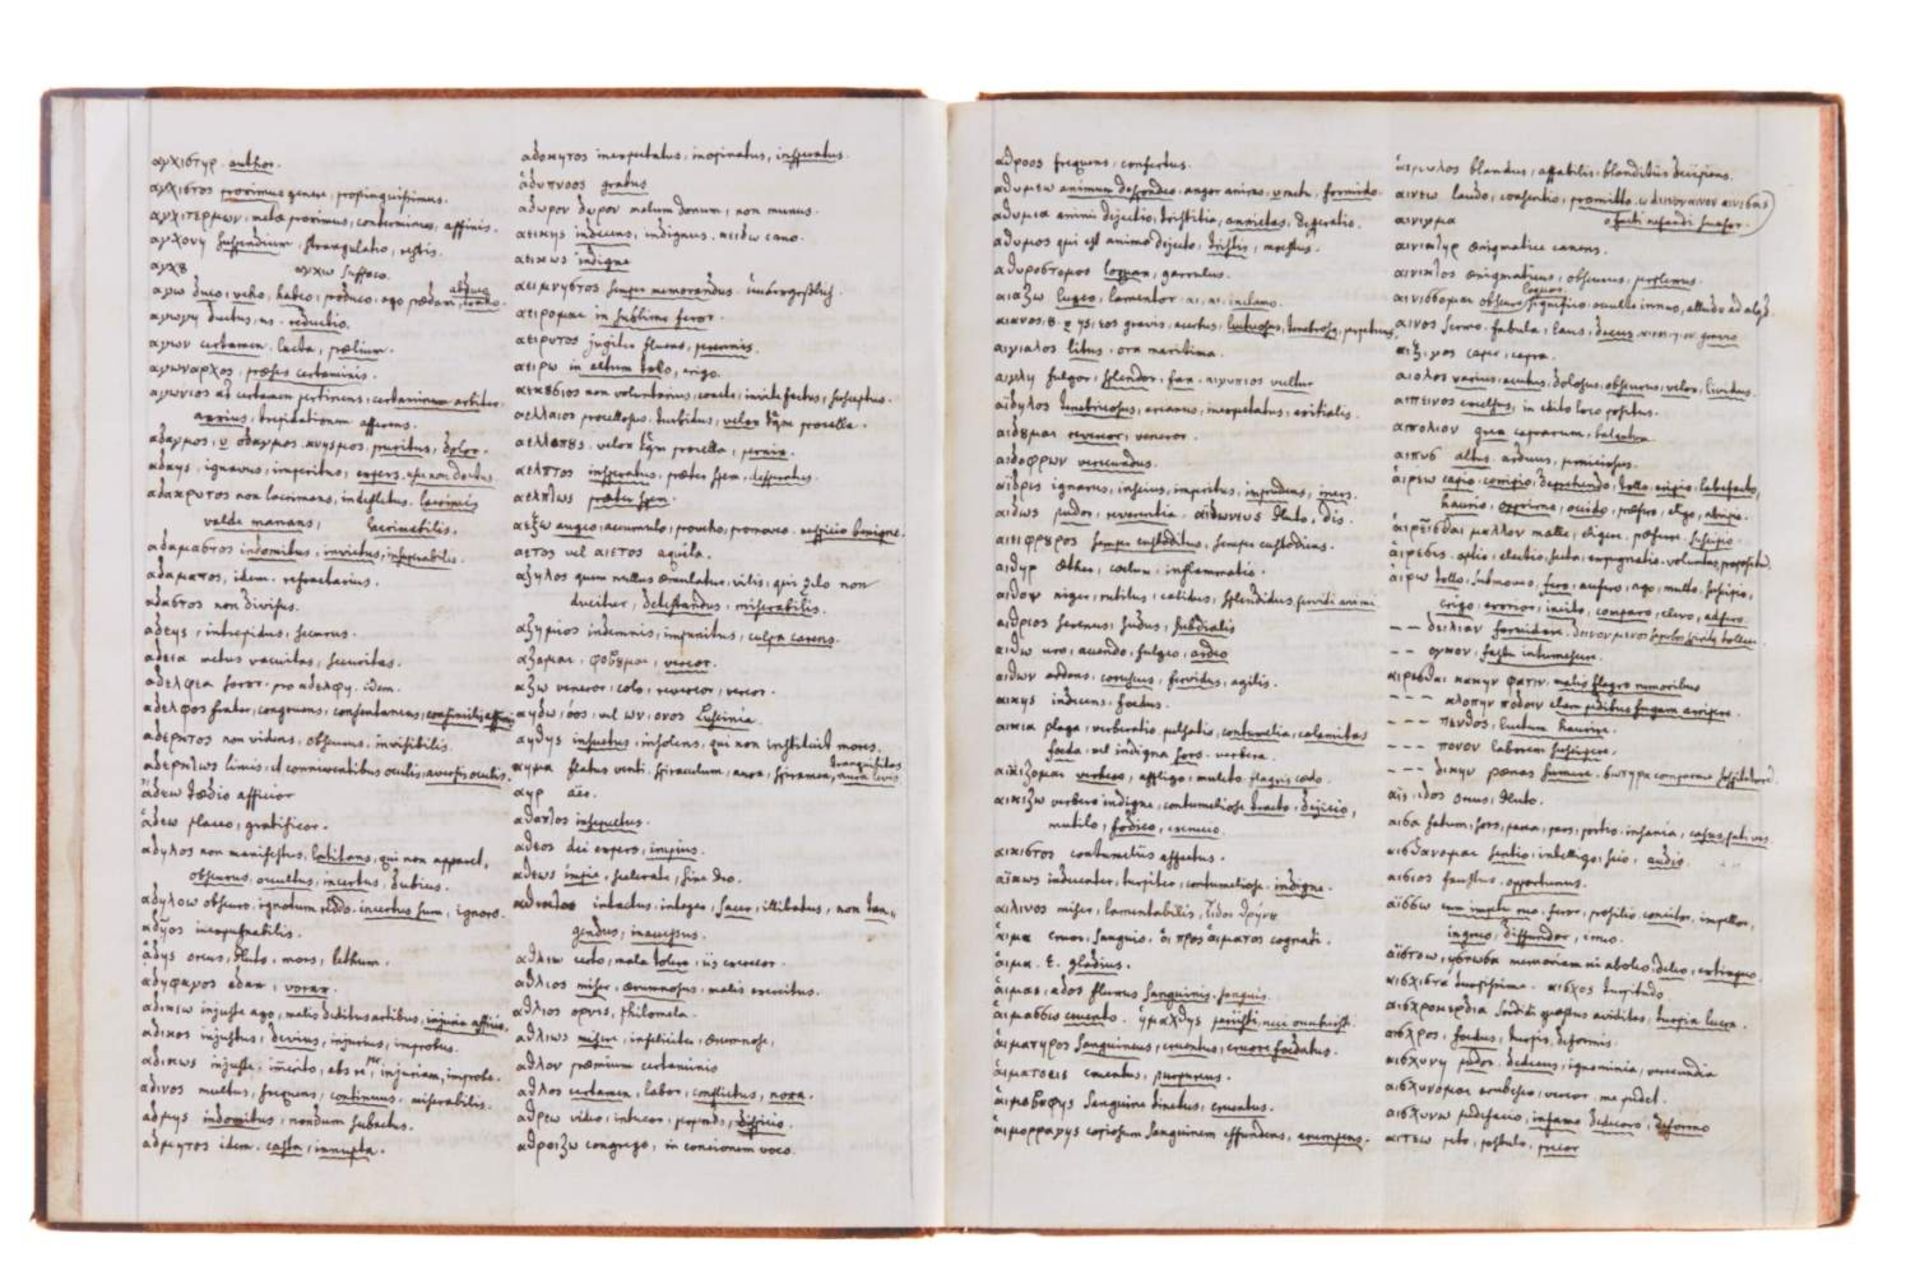 αγχιστηρ. author.
αγχιστος proximus genere, propinquissimus.
αγχιτερμων. meta proximus, conterminus, affinis.
αγχονη suspendium, strangulatio, restis.
αγχȣ αγχω suffoco.
αγω duco, veho, habeo, produco, ago prædam, abduco
αγωγη ductus, us. reductio.
αγων certamen. lucta, prælium.
αγωναρχος, præses certaminis.
αγωνιος ad certamen pertinens, certaminum arbiter
anxius, trepidationem afferens.
αδαγμος, οδαγμος. κνησμος, pruritus, dolor.
αδαης, ignarus, imperitus, expers. non doctus
αδακρυτος non lacrimans, indefletus. lacrimis
valde manans, lacrimabilis.
αδαμαστος indomitus, invictus, insuperabilis.
αδαματος, idem. refractarius.
αδαστος non divisus.
αδεης, intrepidus, securus.
αδεια metus vacuitas, securitas.
αδελφεα soror. pro αδελφη. idem.
αδελφος frater, congruens, consentaneus, consimilis
αδερκτος non videns, obscurus, invisibilis.
αδερκτως limis, et conniventibus oculis, aversis oculis.
ἀδεω tædio afficior
ἁδεω placeo, gratificor.
αδηλος non manifestus, latitans, qui non apparet,
obscurus, occultus, incertus, dubius.
αδηλοω obscuro, ignotum reddo. incertus sum, ignoro.
αδῃος inexpugnabilis.
ἁδης orcus, Pluto. mors, lethum.
αδηφαγος edax, vorax.
αδικεω injuste ago, malis deditus artibus, injuria afficio.
αδικος injustus, devius, injurius, improbus.
αδικως injuste, immerito, abs re, per injuriam, improbe.
αδινος multus, frequens, continuus. miserabilis.
αδμης indomitus, nondum subactus.
αδμητος idem. casta, innupta.
αδοκητος inexpectatus, inopinatus, insperatus.
ἁδυπνοος gratus
αδωρον δωρον malum donum, non munus.
αεικης indecens, indignus. αειδω cano.
αεικως indigne
αειμνηστος semper memorandus. unvergeßlich.
αειρομαι in sublime feror.
αειρυτος jugiter fluens, perennis.
αειρω in altum tollo, erigo.
αεκȣσιος non voluntarius, coacte, invite factus, susceptus.
αελλαιος procellosus, turbidus, velox tanquam procella.
αελλοπȣς. velox tanquam procella, pernix.
αελπτος insperatus. præter spem, desperatus.
αελπτως præter spem.
αεξω augeo, accumulo, proveho, promoveo. respicio benigne.
αετος vel αιετος aquila.
αζηλος quem nullus æmulatur, vilis, qui zelo non
ducitur, detestandus, miserabilis.
αζημιος indemnis, impunitus, culpa carens.
αζομαι. φοβȣμαι, vereor.
αζω veneror, colo, revereor, vereor.
αηδω, όος, vel ων, ονος Luscinia.
αηθης insuetus, insolens, qui non instituit mores.
αημα flatus venti, spiraculum, aura, spiramen, aura levis tranquillitas
αηρ aër.
αθαπτος insepultus.
αθεος dei expers, impius.
αθεως impie, scelerate, sine deo.
αθικτος intactus, integer, sacer, illibatus, non tan=
gendus, inaccessus.
αθλεω certo, mala tolero, iis exerceor.
αθλιος miser, ærumnosus. malis exercitus.
αθλιος ορνις, Philomela.
αθλιως misere, infeliciter, ærumnose,
αθλον præmium certaminis
αθλος certamen, labor, conflictus, noxa.
αθρεω video, intueor, perpendo, despicio.
αθροιζω congrego, in concionem voco.
αθροος frequens, confertus.
αθυμεω animum despondeo. angor animo, formido.
αθυμια animi dejectio, tristitia, anxietas, desperatio.
αθυμος qui est animo dejecto, tristis, mæstus.
αθυροστομος loquax, garrulus.
αιαζω lugeo, lamentor. αι, αι, inclamo.
αιανος. gravis, acerbus, luctuosus, tenebrosus, perpetuus.
αιγιαλος litus, ora maritima.
αιγλη fulgor, splendor, fax. αιγυπιος vultur
αϊδηλος tenebricosus, arcanus, inexpectatus, exitialis.
αιδȣμαι revereor, veneror.
αιδοφρων verecundus.
αϊδρις ignarus, inscius, imperitus, imprudens, iners.
αιδως pudor, reverentia. αϊδωνευς Pluto, Dis.
αιειφρȣρος semper custoditus, semper custodiens.
αιθηρ æther, cœlum, inflammatio.
αιθοψ niger, rutilus, calidus, splendidus fervidi animi
αιθριος serenus, sudus, subdialis
αιθω uro, accendo, fulgeo, ardeo
αιθων ardens, coruscus, fervidus, agilis.
αικης indecens, fœdus.
αικια plaga, verberatio, pulsatio, contumelia, calamitas
fœda, vel indigna sors. verbera.
αϊκιζομαι verbero, affligo, mulcto. flagris cædo.
αικιζω verbero indigne, contumeliose tracto, dejicio,
mutilo, fodico, excrucio.
αικιστος contumeliis affectus.
αϊκως indecenter, turpiter, contumeliose. indigne.
αιλινος miser, lamentabilis, ειδος θρηνȣ
ἁιμα cruor, sanguis. ὁι προς ἁιματος cognati.
ἁιμα. t. gladius.
ἁιμας, αδος fluxus sanguinis. sanguis.
ἁιμασσω cruento.
ἁιματηρος sanguineus, cruentus, cruore fœdatus.
ἁιματοεις cruentus, purpureus.
ἁιμοβαφης sanguine tinctus, cruentus.
ἁιμορραγης copiosum sanguinem effundens, erumpens.
αιμυλος blandus, affabilis, blanditiis decipiens.
αινεω laudo, consentio, promitto. ω δεινον αινον αινεσας
αινιγμα o facti nefandi suasor.
αινικτηρ ænigmatice canens.
αινικτος ænigmaticus, obscurus, perplexus.
αινισσομαι obscure loquor, significo. occulte innuo, alludo ad aliquid
αινος sermo, fabula, laus, decus. gravis
αιξ, γος caper, capra.
αιολος varius, acutus, dolosus, obscurus, velox, lividus.
αιπεινος excelsus, in edito loco positus.
αιπολιον grex caprarum,
αιπυς altus, arduus, perniciosus.
ἁιρεω capio, corripio, deprehendo, tollo, eripio, labefacto,
haurio, opprimo, occido, præfero, eligo, abripio.
ἁιρεῖσθαι μαλλον malle, eligere, præferre, suscipio.
ἁιρεσις. optio, electio, secta, expugnatio. voluntas, propositum.
ἁιρω tollo, submoveo, fero, aufero, ago, mulceo, suscipio,
erigo, exorior, incito, comparo, elevo, adfero.
– – δειλιαν formidare.
– – ογκον, fastu intumescere.
αιρεσθαι κακην φατιν. malis flagro rumoribus
– – – κλοπην ποδοιν clam pedibus fugam arripere.
– – – πενθος, luctum haurire.
– – – πονον laborem suscipere.
– – – δικην pœnas sumere.
αϊς, ιδος orcus, Pluto.
αισα fatum, sors, parca, pars, portio, insania, casus, fati vis
αισθανομαι sentio, intelligo, scio, audio.
αισιος faustus. opportunus.
αϊσσω cum impetu ruo, feror, prosilio, concitor, impellor,
ingruo, diffundor, irruo.
αϊστοω, memoriam rei aboleo, deleo, extinguo.
αισχιστα turpissime. αισχος turpitudo.
αισχροκερδια sordidi quæstus aviditas, turpia lucra.
αισχρος, fœdus, turpis, deformis.
αισχυνη pudor, dedecus, ignominia, verecundia
αισχυνομαι erubesco, vereor, me pudet.
αισχυνω pudefacio, infamo, dedecoro, deformo
αιτεω peto, postulo, precor